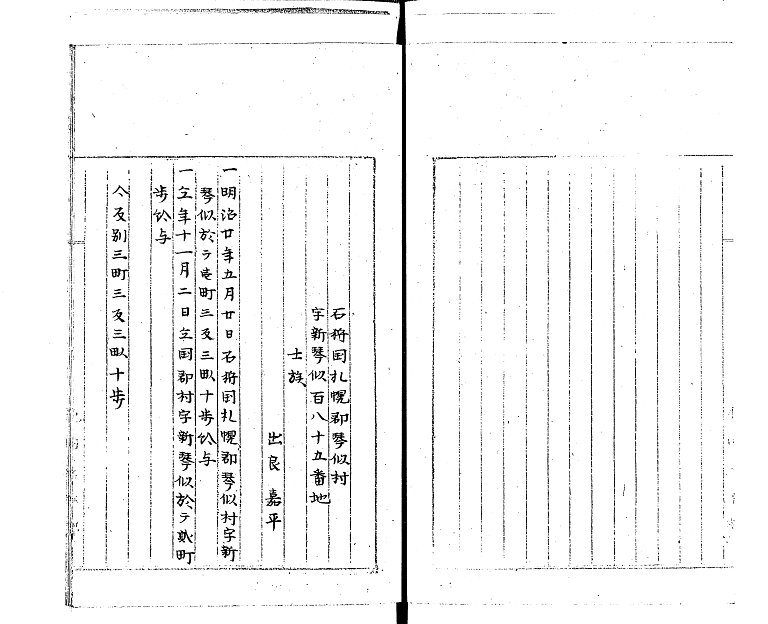 石狩国札幌郡琴似村
字新琴似百八十五番地
士族
出良嘉平
一明治廿年五月廿日石狩国札幌郡琴似村字新
琴似於テ壱町三反三畝十歩給与
一仝年十一月二日仝国郡村字新琴似於テ弐町
歩給与
合反別三町三反三畝十歩